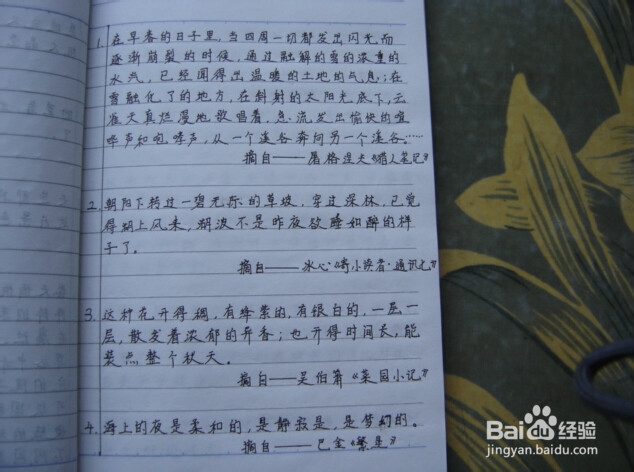 1. 在早春的日子里，当四周一切都发出闪光而
逐渐崩裂的时候，通过融解的雪的浓重的
水气，已经闻得出温暖的土地的气息；在
雪融化了的地方，在斜射的太阳光底下，云
雀天真烂漫地歌唱着，急流发出愉快的喧
哗声和咆哮声，从一个溪谷奔向另一个溪谷。……
摘自——屠格涅夫《猎人笔记》
2. 朝阳下转过一碧无际的草坡，穿过深林，已觉
得湖上风来，湖波不是昨夜欲睡如醉的样
子了。
摘自——冰心《寄小读者·通讯七》
3. 这种花开得稠，有绛紫的，有银白的，一层一
层，散发着浓郁的异香；也开得时间长，能
装点整个秋天。
摘自——吴伯箫《菜园小记》
4. 海上的夜是柔和的，是静寂是，是梦幻的。
摘自——巴金《繁星》
Baidu经验
jingyan.baidu.com